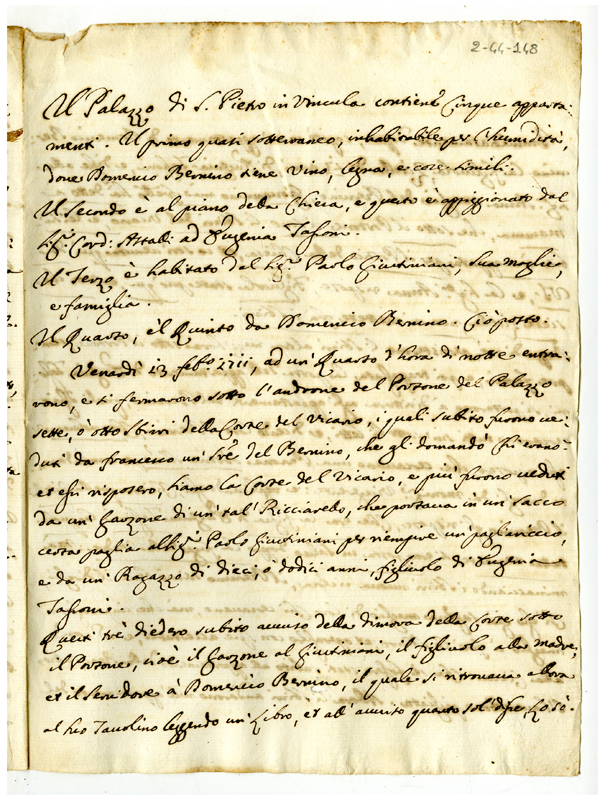 2-44-148
Il Palazzo di S. Pietro in Vincula contiene Cinque apparta-
menti. Il primo quasi sotterraneo, inhabitabile per l'humidità,
dove Domenico Bernino tiene Vino, legna, e cose simili.
Il Secondo è al piano della Chiesa, e questo è appiggionato dal
Sig.r Card: Astalli ad Eugenia Tassoni.
Il Terzo è habitato dal Sig.r Paolo Giustiniani, sua moglie,
e famiglia.
Il Quarto, e'l Quinto da Domenico Bernino. Ciò posto.
Venardì 13 feb.o 1711, ad un' Quarto d'hora di notte entra-
vono, e si fermarono sotto l'androne del Portone del Palazzo
sette, ò otto sbirri della Corte del Vicario, i quali subito furono ve-
duti da francesco un' Sre del Bernino, che gli domandò chi erano
et essi risposero, siamo la Corte del Vicario, e più furono veduti
da un' Garzone di un' tal' Ricciarello, che portava in un' sacco
certa paglia al Sig.r Paolo Giustiniani per riempire un' pagliariccio,
e da un' Ragazzo di dieci, ò dodici anni, figliuolo di Eugenia
Tassoni.
Questi trè diedero subito avviso della dimora della Corte sotto
il Portone, cioè il Garzone al Giustiniani, il figliuolo alla madre,
et il Servidore à Domenico Bernino, il quale si ritrovava allora
al suo Tavolino leggendo un' Libro, et all' avviso quanto sol' disse, Lo sò.